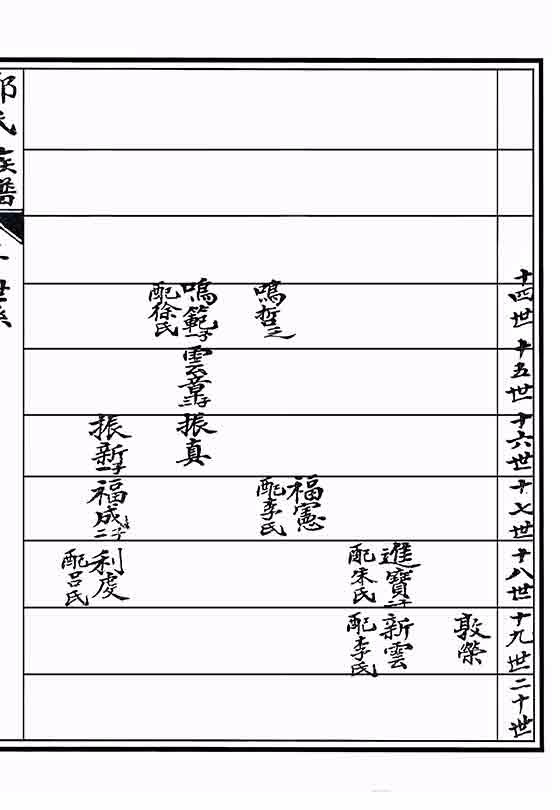 十四世
十五世
十六世
十七世
十八世
十九世
二十世
敦榮
進寶二子
配朱氏
新雲
配李氏
鳴哲之
福憲
配李氏
鳴範一子
配徐氏
雲章二子
振真
振新一子
福成二子
利虔
配呂氏
氏族譜
世系